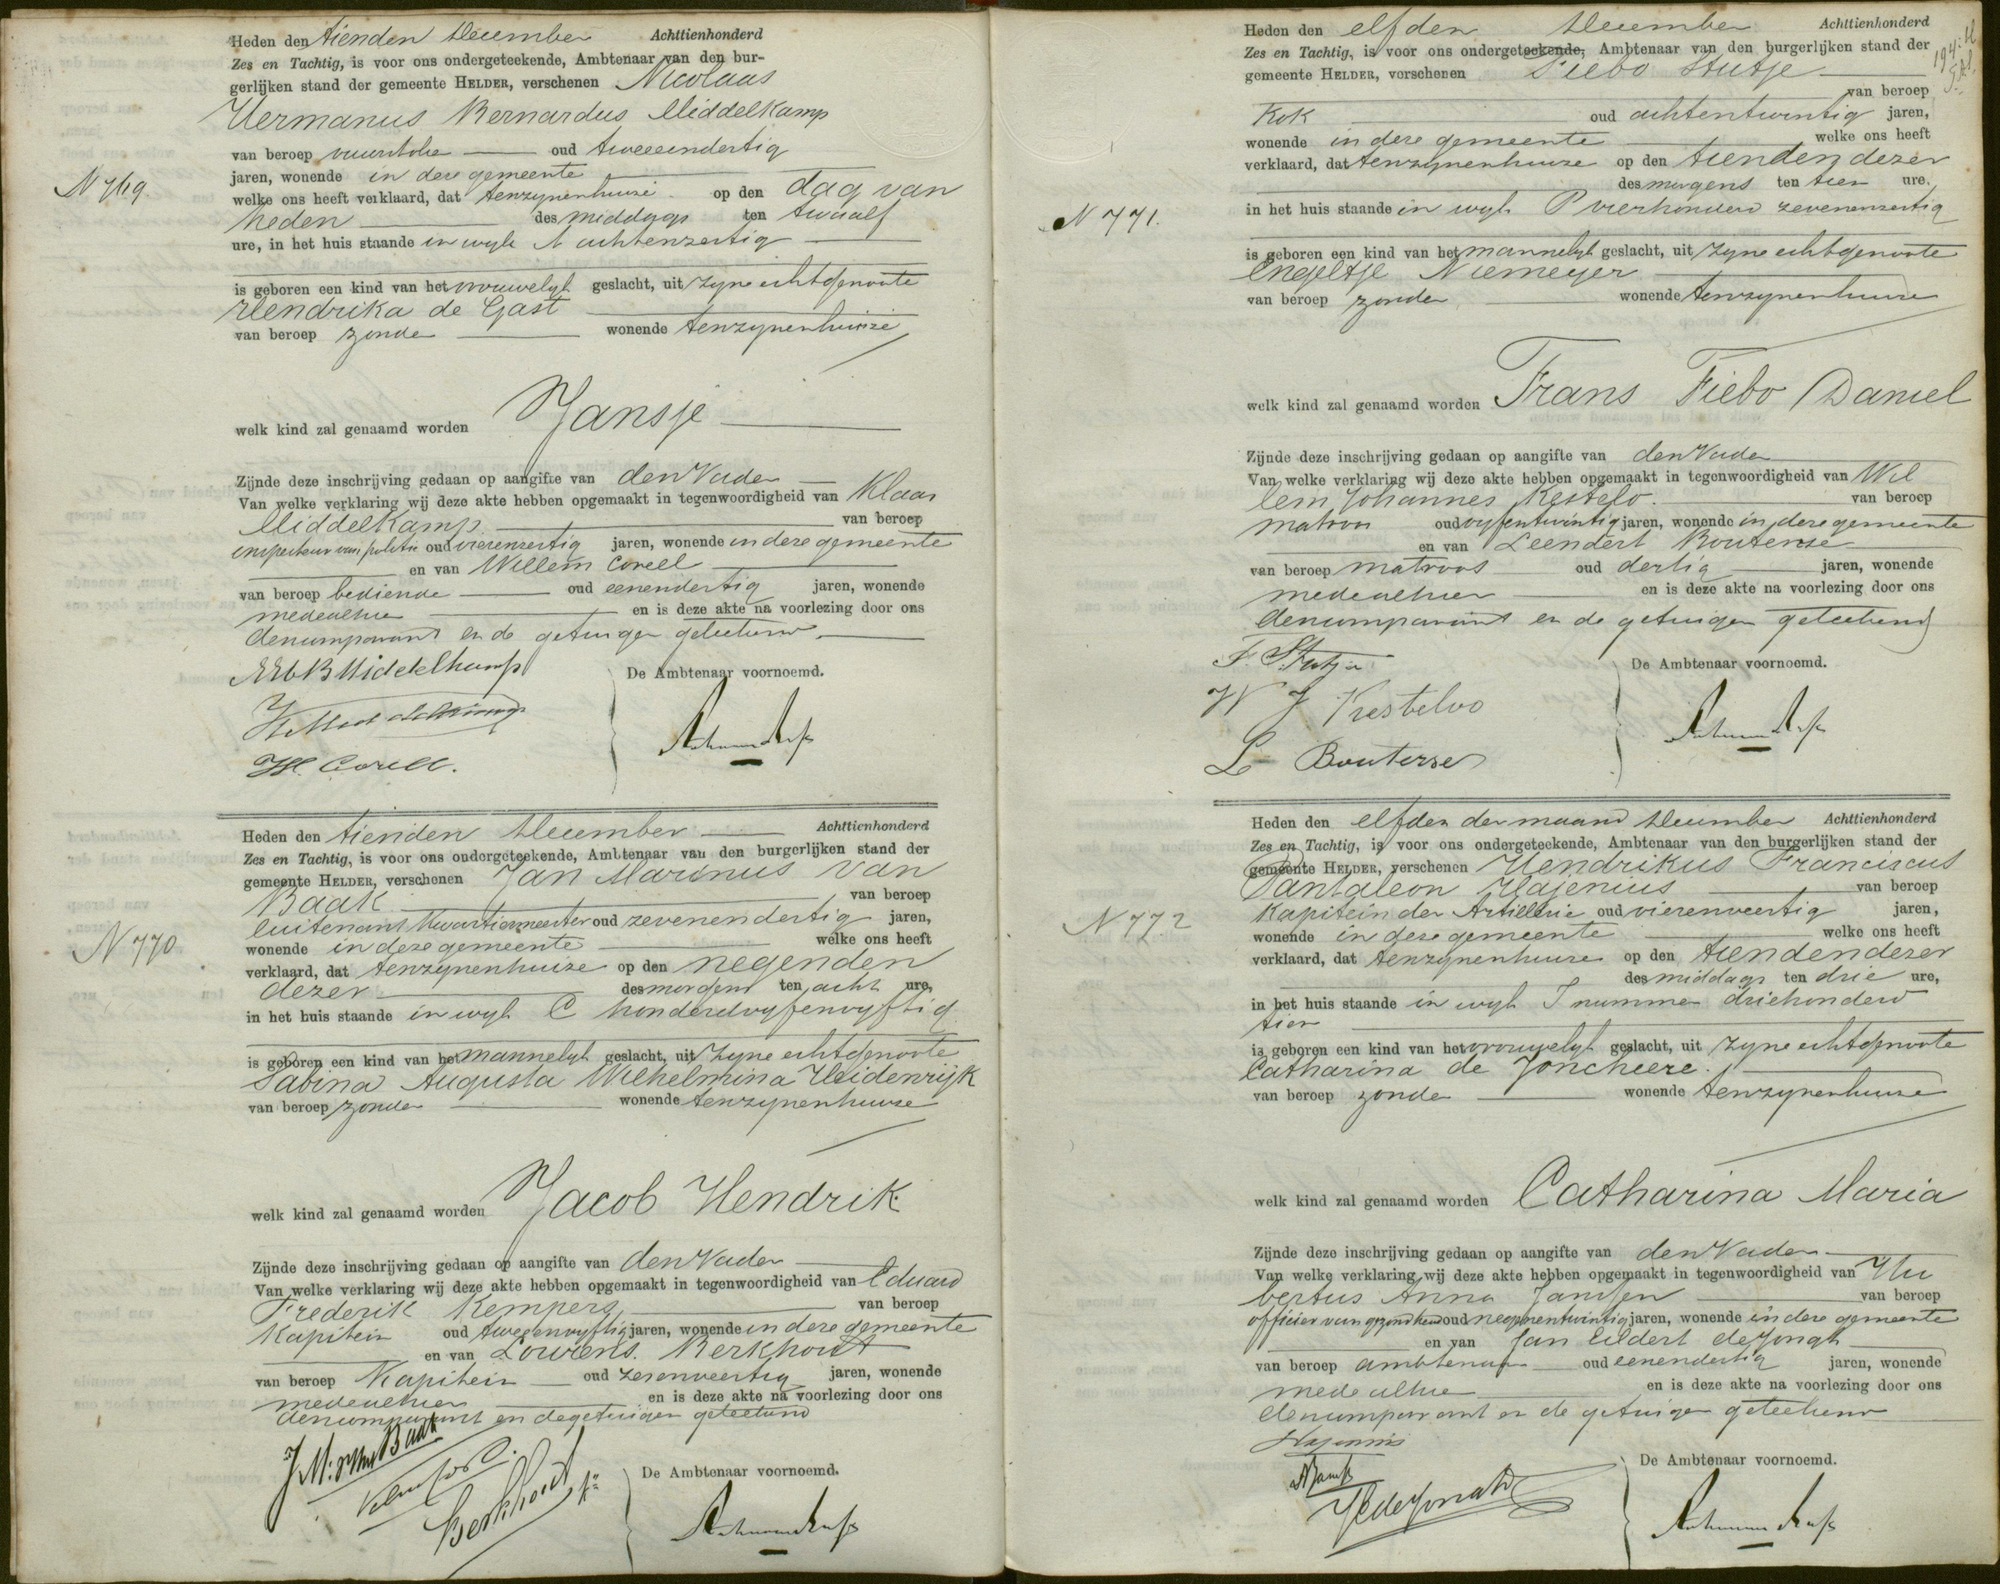 Heden den tienden December Achttienhonderd
Zes en Tachtig, is voor ons ondergeteekende, Ambtenaar van den bur-
gerlijken stand der gemeente HELDER, verschenen Nicolaas
Hermanus Bernardus Middelkamp
van beroep vuurstoker oud tweeendertig
jaren, wonende in deze gemeente
N 769.
welke ons heeft verklaard, dat tenzijnenhuize op den dag van
heden des middags ten twaalf
ure, in het huis staande in wijk N achtenzestig
is geboren een kind van het vrouwelijk geslacht, uit zijne echtgenoote
Hendrika de Gast
van beroep zonder wonende tenzijnenhuize
welk kind zal genaamd worden Jansje
Zijnde deze inschrijving gedaan op aangifte van den Vader
Van welke verklaring wij deze akte hebben opgemaakt in tegenwoordigheid van Klaas
Middelkamp van beroep
inspecteur van politie oud vierenzestig jaren, wonende in deze gemeente
en van Willem Corell
van beroep bediende oud eenendertig jaren, wonende
mede alhier en is deze akte na voorlezing door ons
den comparant en de getuigen geteekend.
NHB Middelkamp
De Ambtenaar voornoemd.
K Middelkamp
W. Corell.
Heden den tienden December Achttienhonderd
Zes en Tachtig, is voor ons ondergeteekende, Ambtenaar van den burgerlijken stand der
gemeente HELDER, verschenen Jan Marinus van
Baak van beroep
luitenant kwartiermeester oud zevenendertig jaren,
N 770
wonende in deze gemeente welke ons heeft
verklaard, dat tenzijnenhuize op den negenden
dezer des morgens ten acht ure,
in het huis staande in wijk C honderdvijfenvijftig
is geboren een kind van het mannelijk geslacht, uit zijne echtgenoote
Sabina Augusta Wilhelmina Heidenrijk
van beroep zonder wonende tenzijnenhuize
welk kind zal genaamd worden Jacob Hendrik
Zijnde deze inschrijving gedaan op aangifte van den Vader
Van welke verklaring wij deze akte hebben opgemaakt in tegenwoordigheid van Eduard
Frederik Kempers van beroep
Kapitein oud tweeenvijftig jaren, wonende in deze gemeente
en van Lourens Berkhout
van beroep Kapitein oud zevenveertig jaren, wonende
mede alhier en is deze akte na voorlezing door ons
den comparant en de getuigen geteekend
J M: van Baak
Berkhout
De Ambtenaar voornoemd.
Heden den elfden December Achttienhonderd
Zes en Tachtig, is voor ons ondergeteekende, Ambtenaar van den burgerlijken stand der
gemeente HELDER, verschenen Fiebo Stutje
van beroep
Kok oud achtentwintig jaren,
wonende in deze gemeente welke ons heeft
verklaard, dat tenzijnenhuize op den tienden dezer
des morgens ten tien ure,
N 771.
in het huis staande in wijk P vierhonderd zevenenzestig
is geboren een kind van het mannelijk geslacht, uit zijne echtgenoote
Engeltje Niemeyer
van beroep zonder wonende tenzijnenhuize
welk kind zal genaamd worden Frans Fiebo Daniel
Zijnde deze inschrijving gedaan op aangifte van den Vader
Van welke verklaring wij deze akte hebben opgemaakt in tegenwoordigheid van Wil
lem Johannes Kestelo van beroep
matroos oud vijfentwintig jaren, wonende in deze gemeente
en van Leendert Bouterse
van beroep matroos oud dertig jaren, wonende
mede alhier en is deze akte na voorlezing door ons
den comparant en de getuigen geteekend
F. Stutje
De Ambtenaar voornoemd.
W J Kesteloo
L Bouterse
Heden den elfden der maand December Achttienhonderd
Zes en Tachtig, is voor ons ondergeteekende, Ambtenaar van den burgerlijken stand der
gemeente HELDER, verschenen Hendrikus Franciscus
Pantaleon Hajenius van beroep
Kapitein der Artillerie oud vierenveertig jaren,
N 772
wonende in deze gemeente welke ons heeft
verklaard, dat tenzijnenhuize op den tienden dezer
des middags ten drie ure,
in het huis staande in wijk I nummer driehonderd
tien
is geboren een kind van het vrouwelijk geslacht, uit zijne echtgenoote
Catharina de Joncheere.
van beroep zonder wonende tenzijnenhuize
welk kind zal genaamd worden Catharina Maria
Zijnde deze inschrijving gedaan op aangifte van den Vader
Van welke verklaring wij deze akte hebben opgemaakt in tegenwoordigheid van Hu
bertus Anna Janssen van beroep
officier van gezondheid oud negenentwintig jaren, wonende in deze gemeente
en van Jan Eildert de Jongh
van beroep ambtenaar oud eenendertig jaren, wonende
mede alhier en is deze akte na voorlezing door ons
den comparant en de getuigen geteekend
Hajenius
De Ambtenaar voornoemd.
JE de Jongh